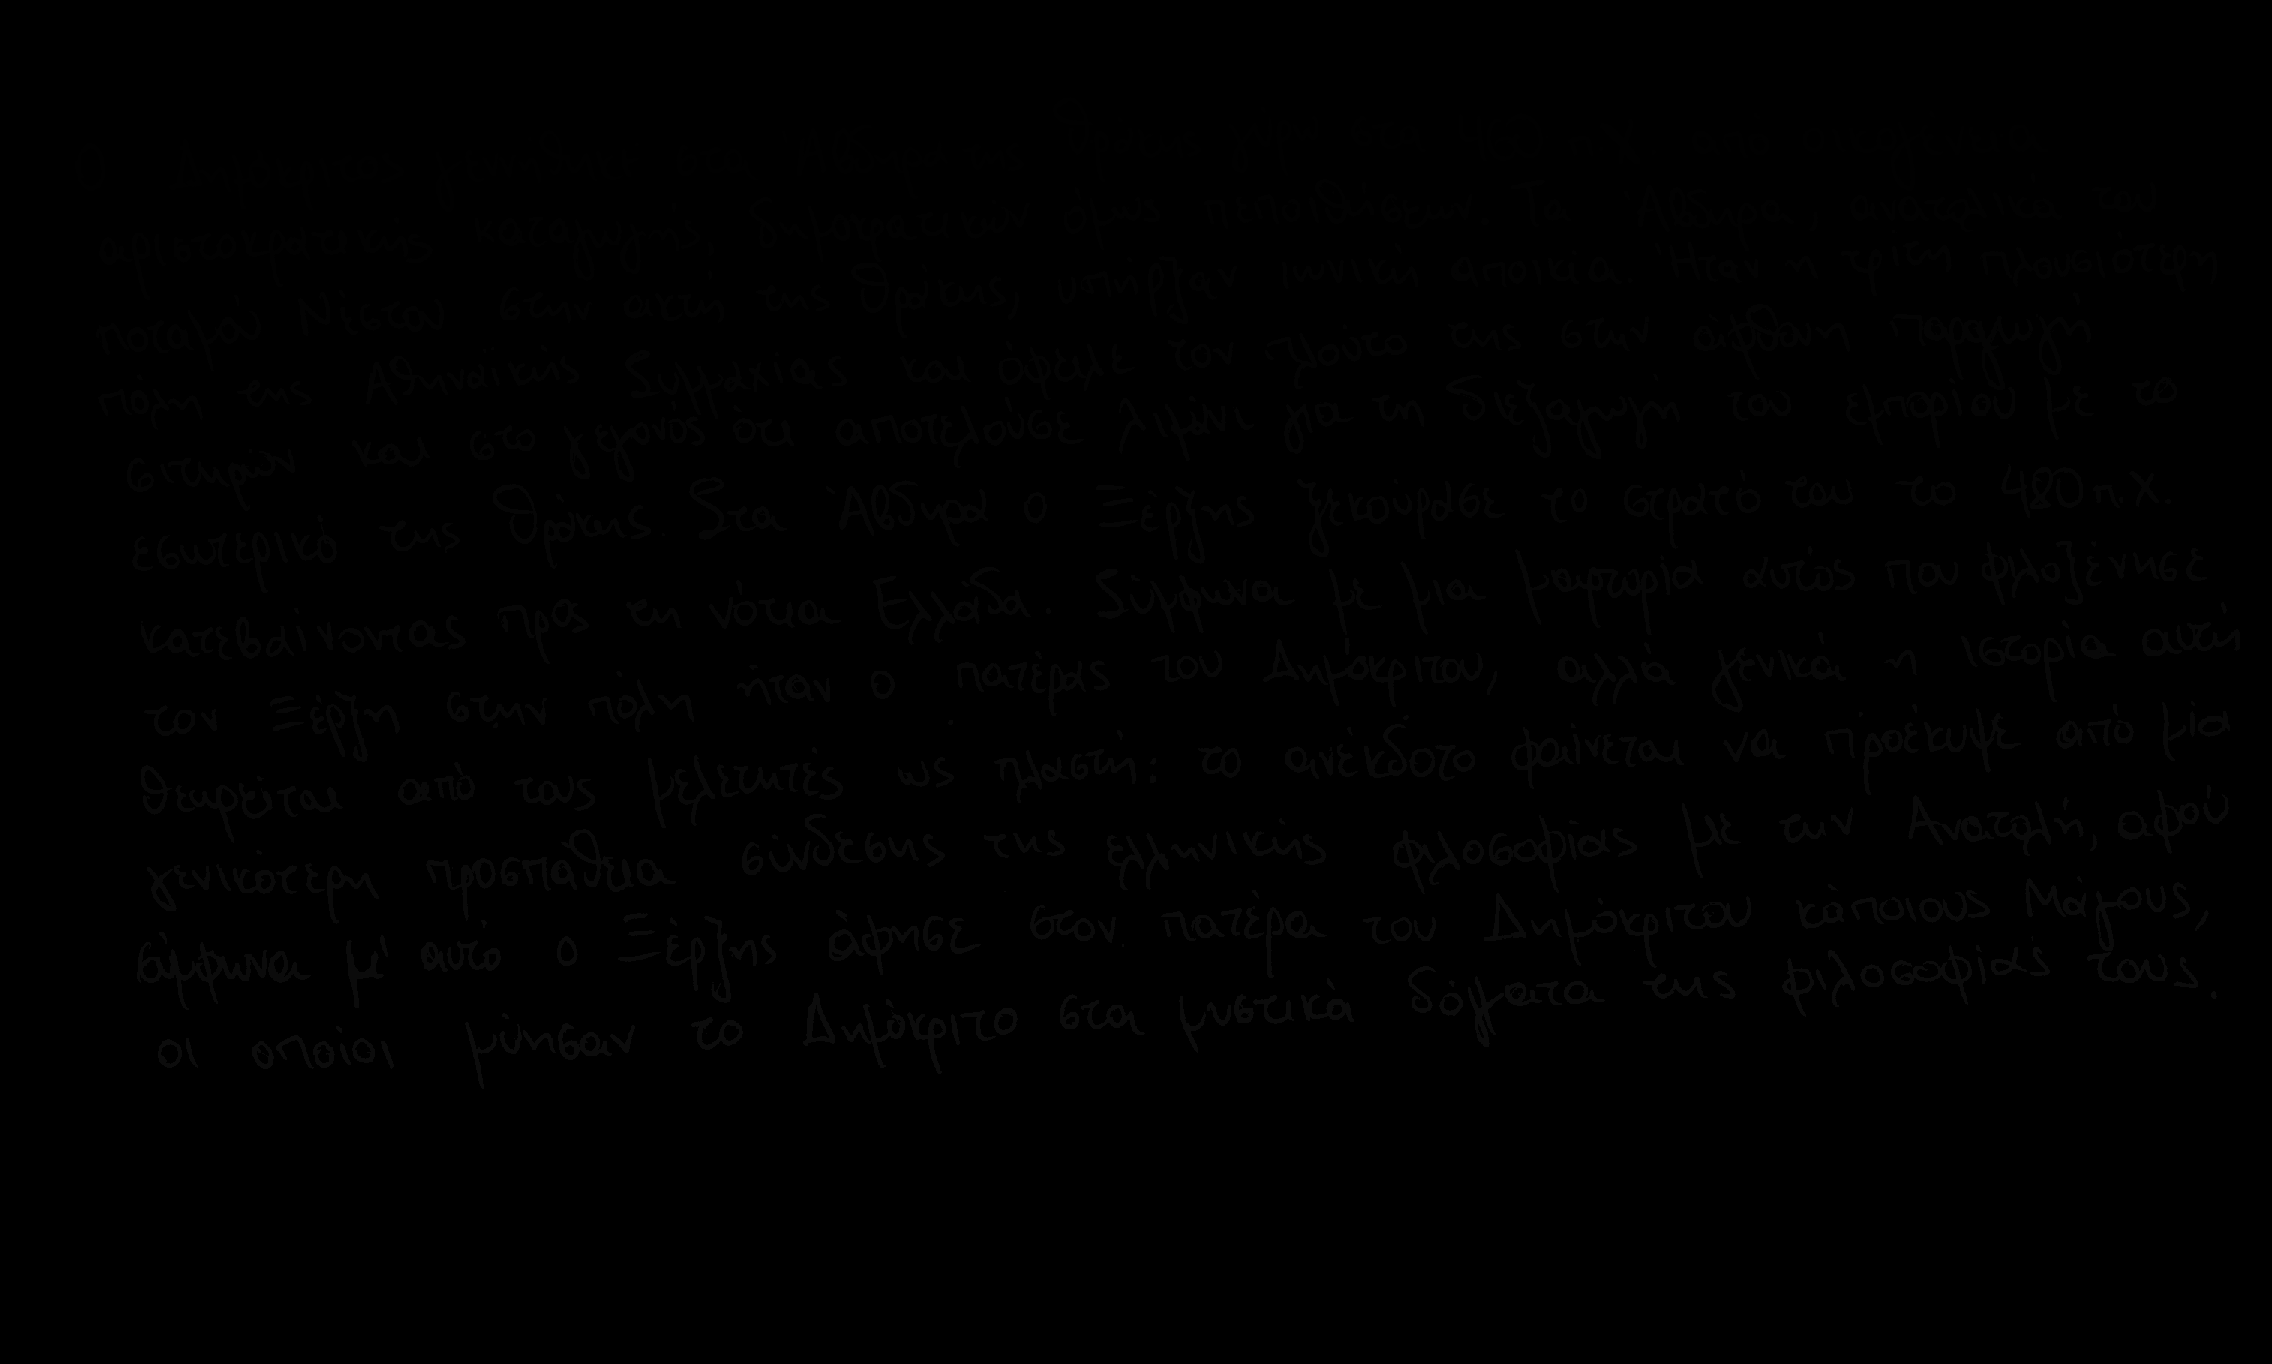 Ο Δημόκριτος γεννήθηκε στα Άβδηρα της Θράκης
αριστοκρατικής καταγωγής, δημοκρατικών όμως πεποιθήσεων. Τα Άβδηρα, ανατολικά του
ποταμού Νέστου στην ακτή της Θράκης, υπήρξαν ιωνική αποικία. Ήταν η τρίτη πλουσιότερη
πόλη της Αθηναϊκής Συμμαχίας και όφειλε τον πλούτο της στην άφθονη παραγωγή
σιτηρών και στο γεγονός ότι αποτελούσε λιμάνι για τη διεξαγωγή του εμπορίου με το
εσωτερικό της Θράκης. Στα Άβδηρα ο Ξέρξης ξεκούρασε το στρατό του το 480 π.Χ.
κατεβαίνοντας προς τη νότια Ελλάδα. Σύμφωνα με μια μαρτυρία αυτός που φιλοξένησε
τον Ξέρξη στην πόλη ήταν ο πατέρας του Δημόκριτου, αλλά γενικά η ιστορία αυτή
θεωρείται από τους μελετητές ως πλαστή: το ανέκδοτο φαίνεται να προέκυψε από μία
γενικότερη προσπάθεια σύνδεσης της ελληνικής φιλοσοφίας με την Ανατολή, αφού
σύμφωνα μ' αυτό ο Ξέρξης άφησε στον πατέρα του Δημόκριτου κάποιους Μάγους,
οι οποίοι μύησαν το Δημόκριτο στα μυστικά δόγματα της φιλοσοφίας τους.